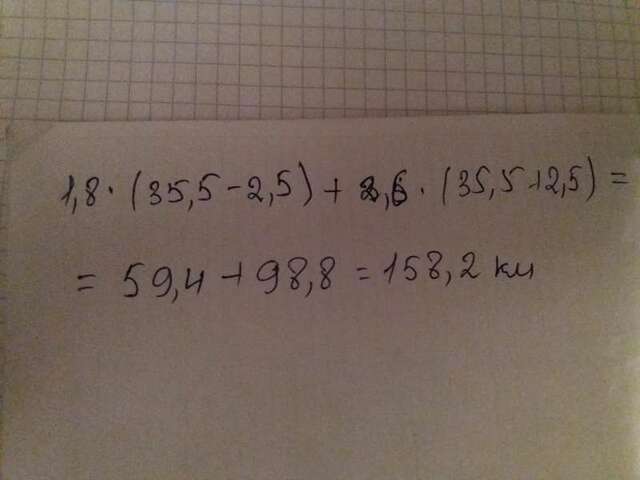 1,8 · (35,5 - 2,5) + 2,6 · (35,5 + 2,5) =
= 59,4 + 98,8 = 158,2 км